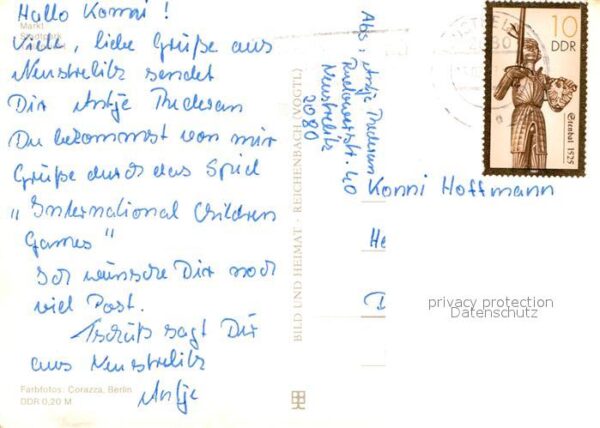 Hallo Konni!
Markt
Viele, liebe Grüße aus
Neustrelitz sendet
Dir Antje
Du bekommst von mir
Grüße durch das Spiel
„International Children
Games"
Ich wünsche Dir noch
viel Post.
Tschüß sagt Dir
aus Neustrelitz
Antje
Farbfotos: Corazza, Berlin
DDR 0,20 M
BILD UND HEIMAT · REICHENBACH (VOGTL)
Abs: Antje
40
Neustrelitz
2080
10
DDR
Stendal 1525
Konni Hoffmann
He
D
privacy protection
Datenschutz